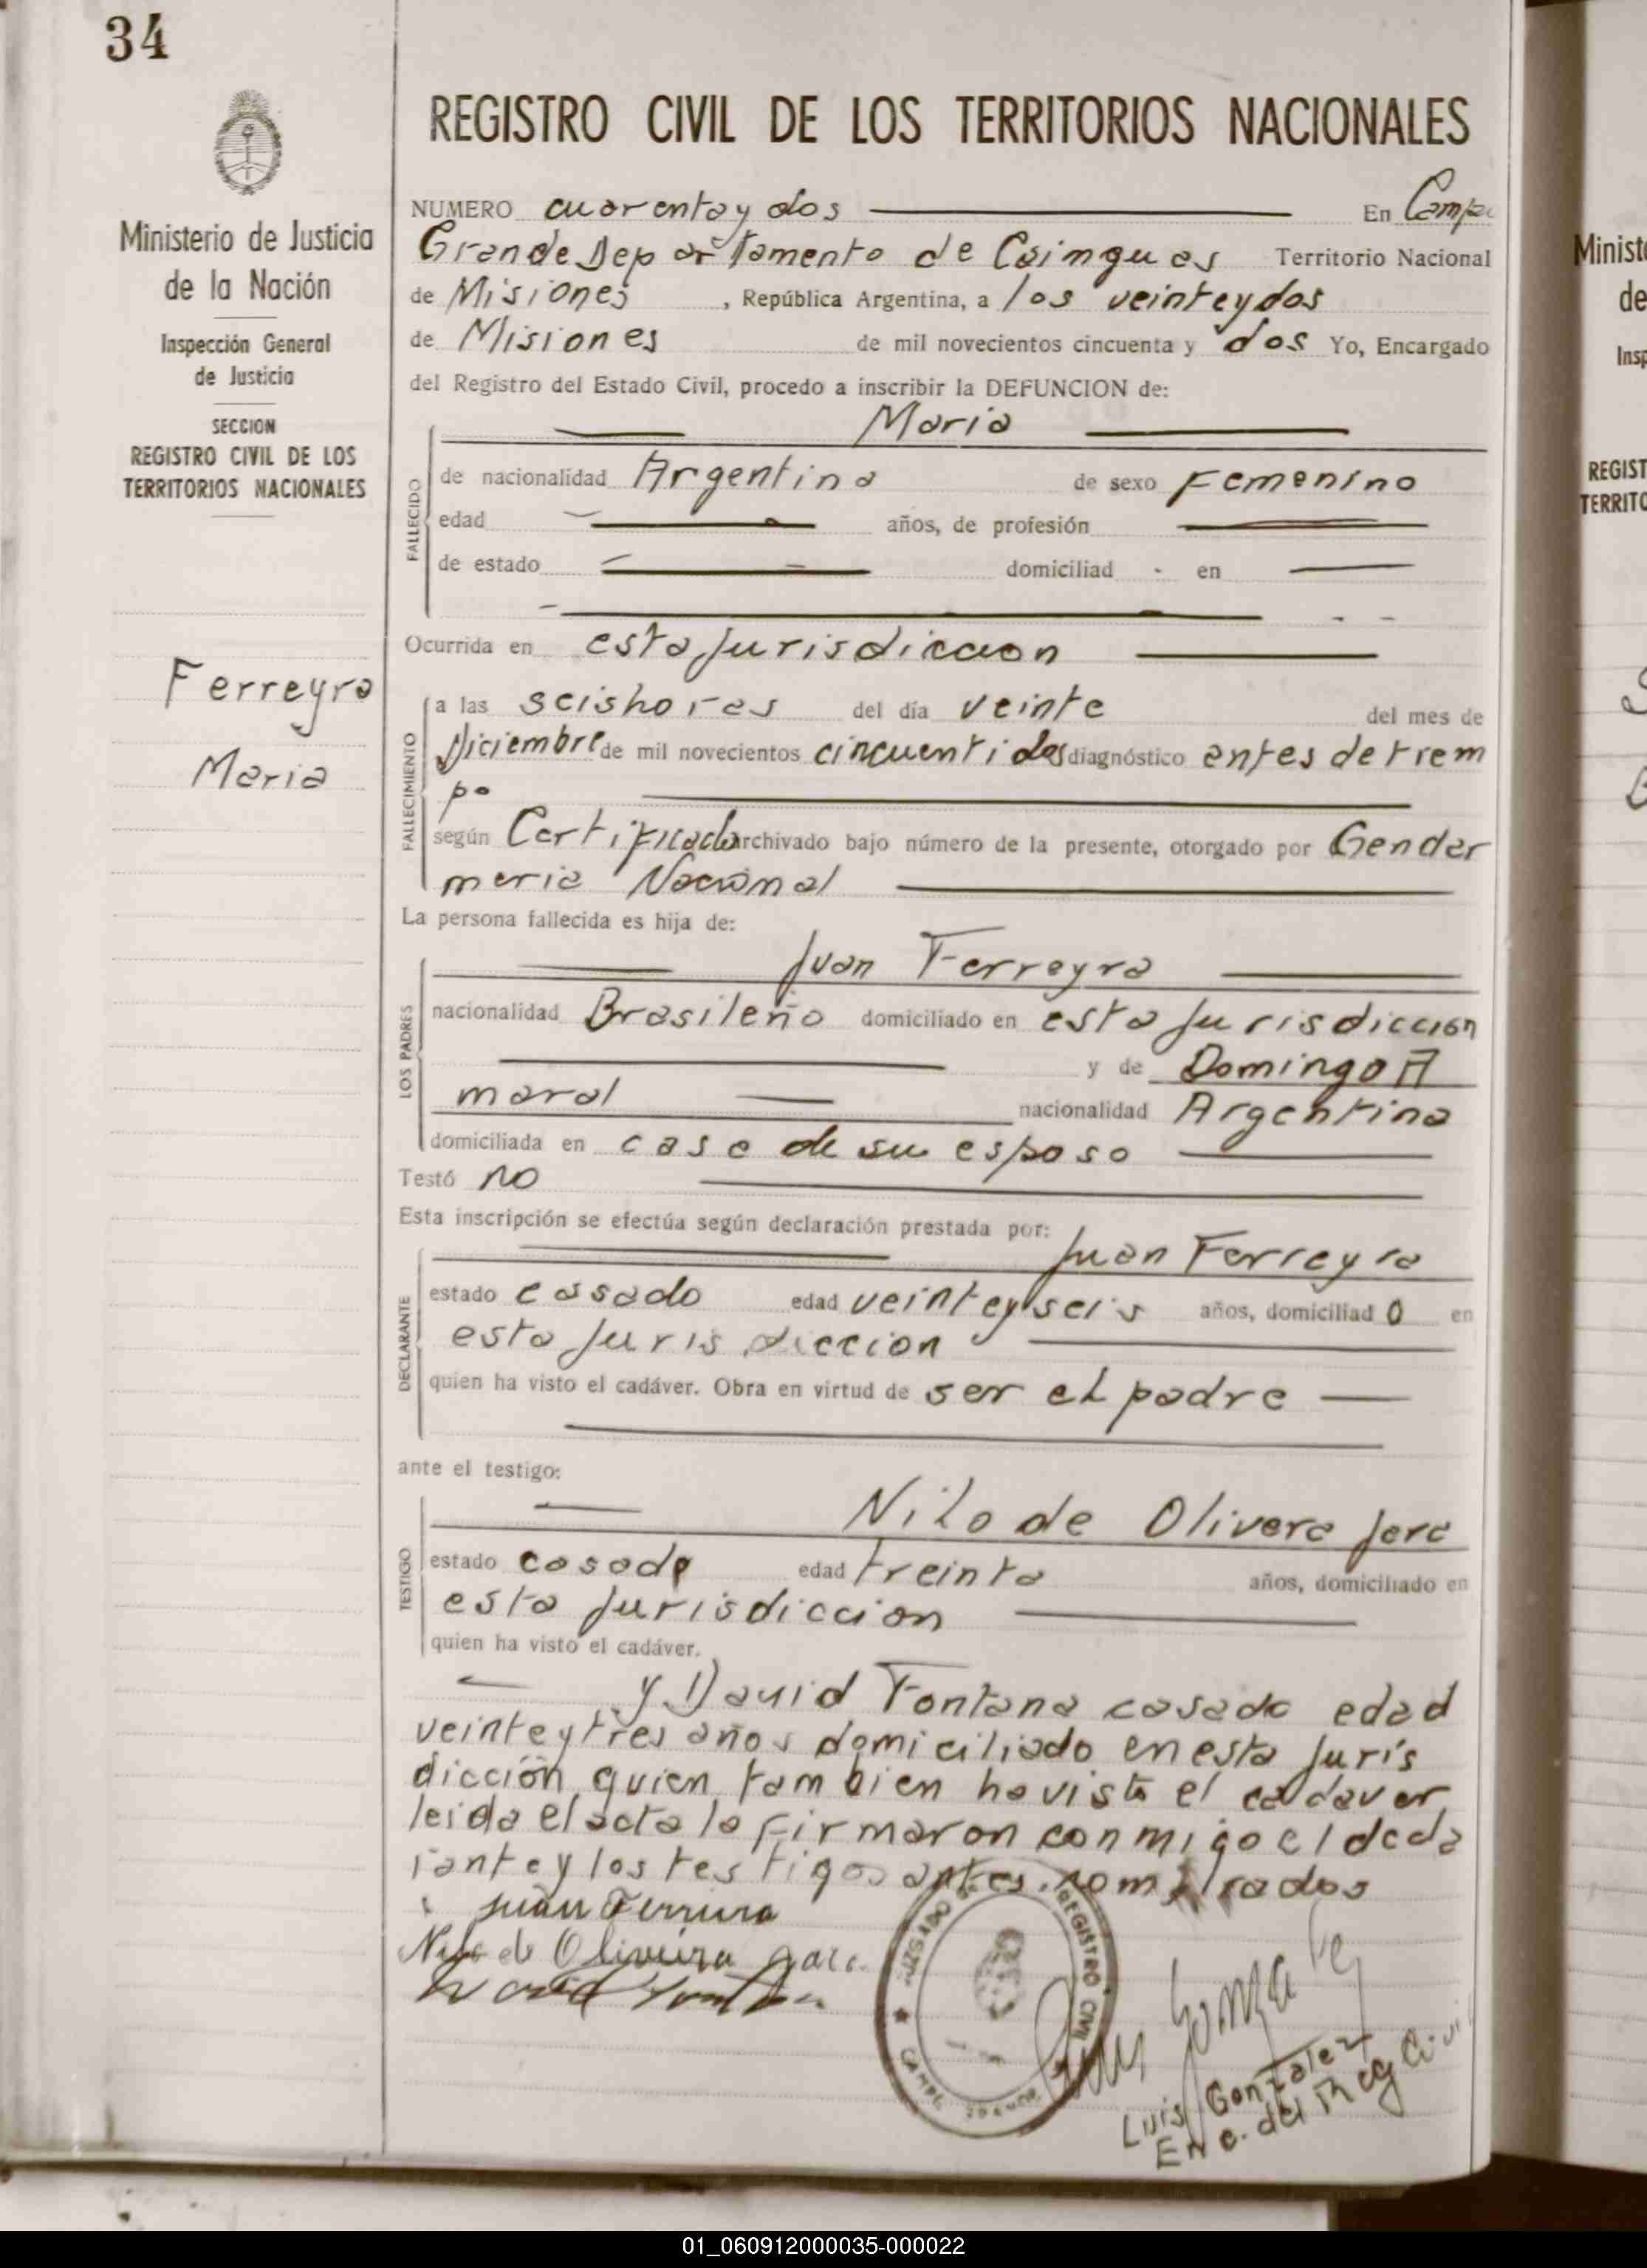 34
Ministerio de Justicia
de la Nación
Inspección General
de Justicia
SECCION
REGISTRO CIVIL DE LOS
TERRITORIOS NACIONALES
Ferreyra
Maria
REGISTRO CIVIL DE LOS TERRITORIOS NACIONALES
NUMERO cuarenta y dos En Campo
Grande Departamento de Cainguas Territorio Nacional
de Misiones, República Argentina, a los veinteydos
de Misiones de mil novecientos cincuenta y dos Yo, Encargado
del Registro del Estado Civil, procedo a inscribir la DEFUNCION de:
Maria
FALLECIDO
de nacionalidad Argentina de sexo Femenino
edad años, de profesión
de estado domiciliad - en
Ocurrida en esta Jurisdiccion
FALLECIMIENTO
a las seis horas del día veinte del mes de
Diciembre de mil novecientos cincuentidos diagnóstico antes de tiem
po
según Certificado archivado bajo número de la presente, otorgado por Gendar
meria Nacional
La persona fallecida es hija de:
LOS PADRES
Juan Ferreyra
nacionalidad Brasileño domiciliado en esta Jurisdiccion
y de Domingo A
maral nacionalidad Argentina
domiciliada en casa de su esposo
Testó no
Esta inscripción se efectúa según declaración prestada por:
DECLARANTE
Juan Ferreyra
estado casado edad veinteyseis años, domiciliad o en
esta Jurisdiccion
quien ha visto el cadáver. Obra en virtud de ser el padre
ante el testigo:
TESTIGO
Nilo de Olivera Jara
estado casado edad treinta años, domiciliado en
esta Jurisdiccion
quien ha visto el cadáver.
y David Fontana casado edad
veinteytres años domiciliado en esta Juris
dicción quien tambien ha visto el cadaver
leida el acta la firmaron conmigo el decla
rante y los testigos antes nombrados
Juan Ferreira
Nilo de Oliveira Jara
David Fontana
JUZGADO DE REGISTRO CIVIL
CAMPO GRANDE
Luis Gonzalez
Luis Gonzalez
Enc. del Reg Civil
Minist
de
Insp
REGIST
TERRITO
01_060912000035-000022